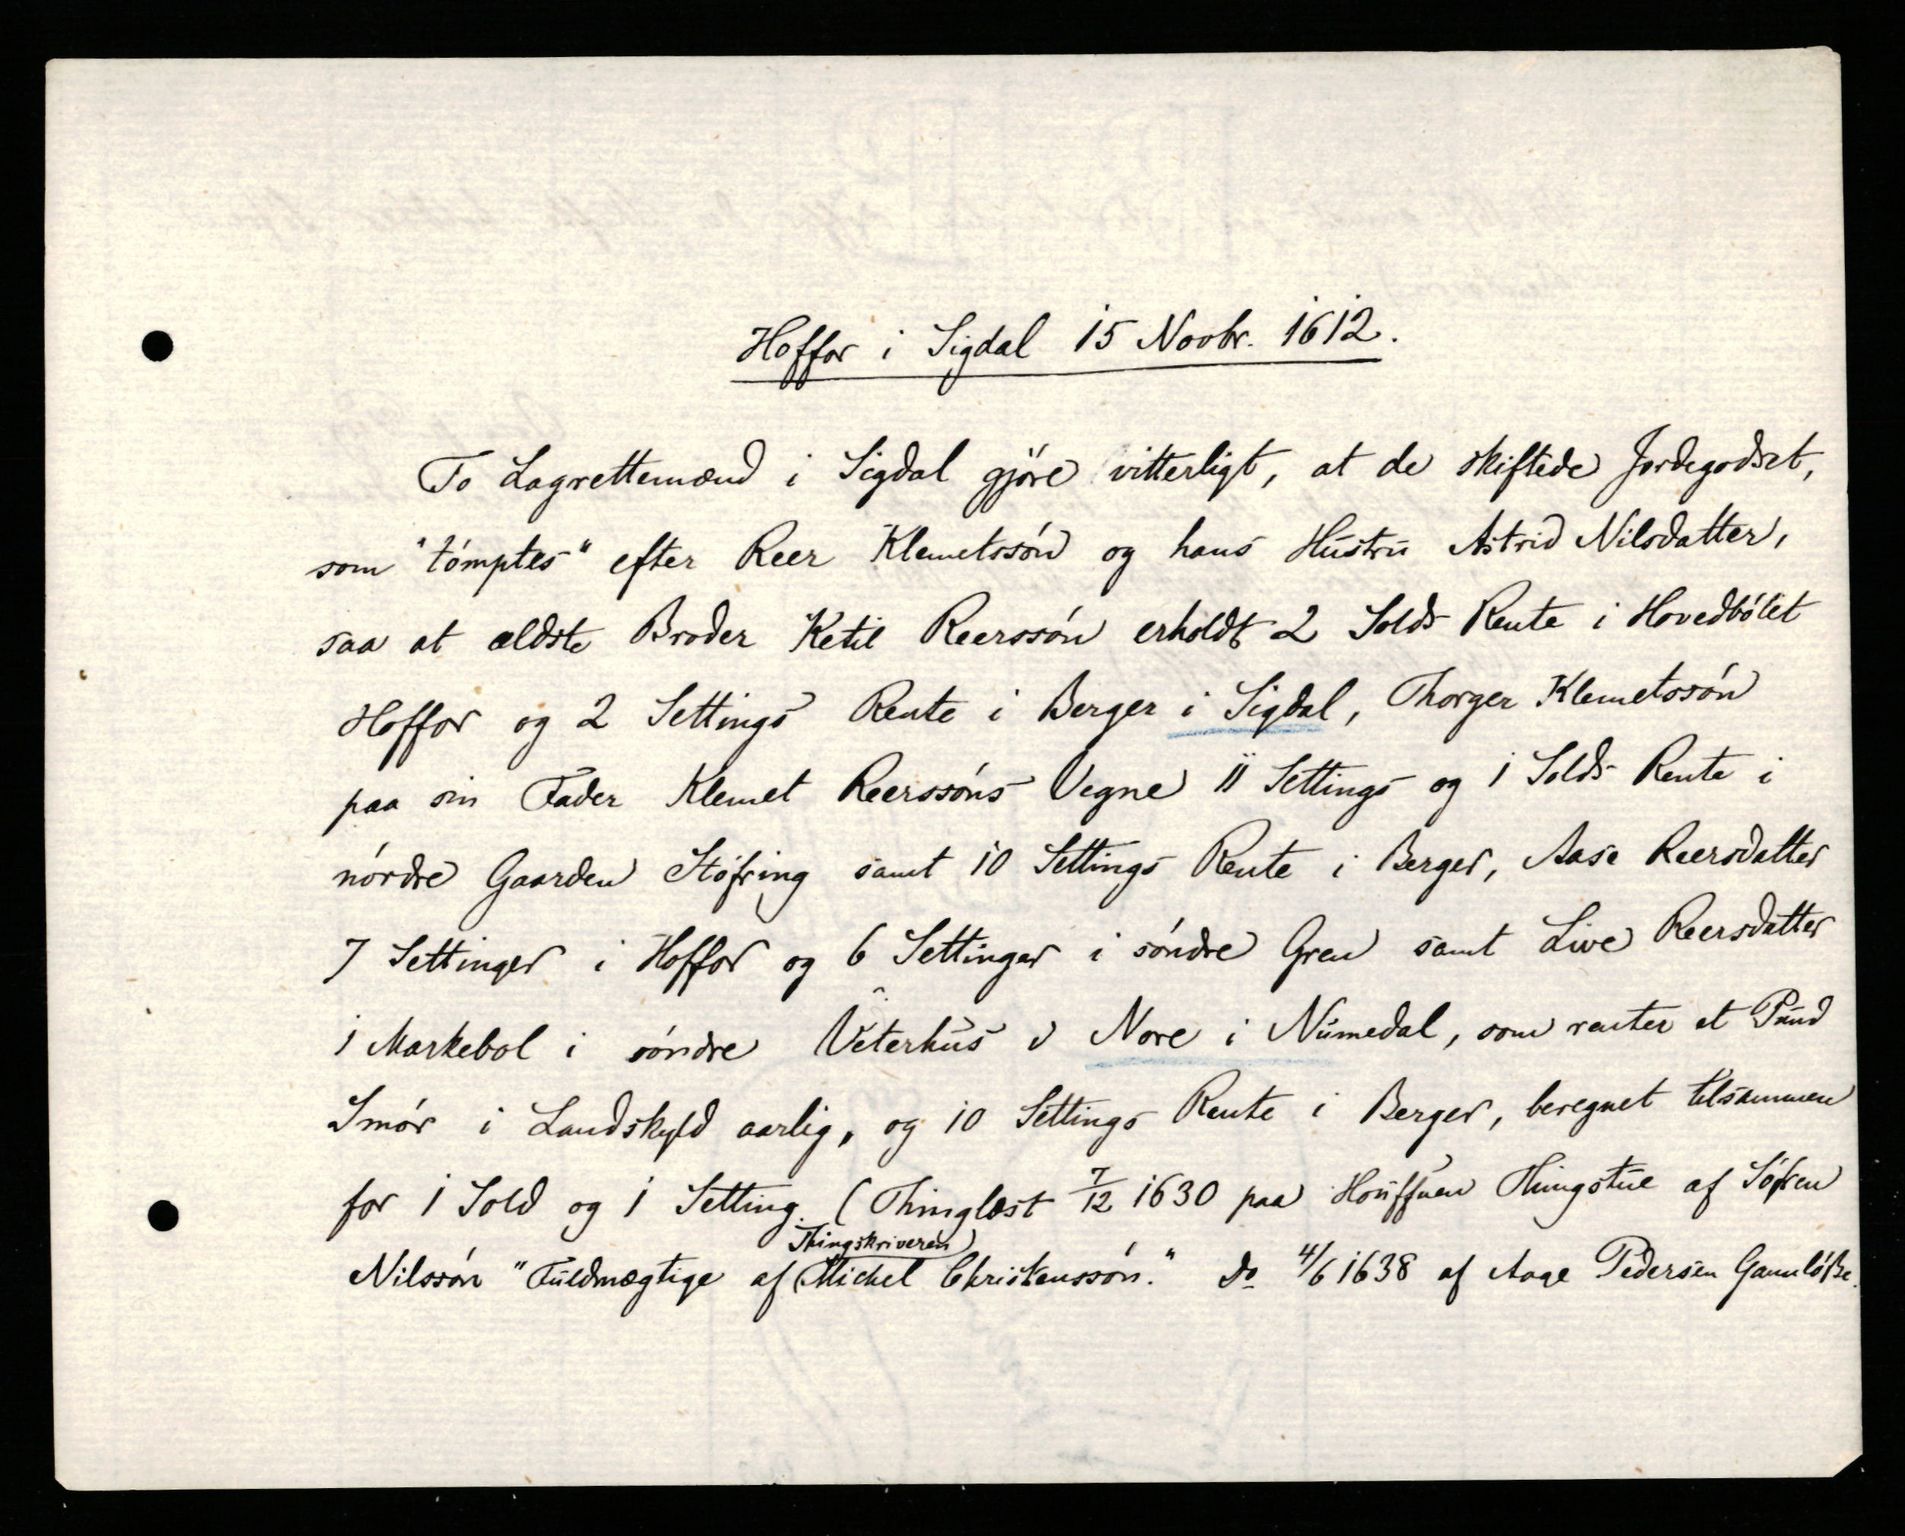 Hoffor i Sigdal 15 Novbr. 1612.
To Lagrettemænd i Sigdal gjöre vitterligt, at de skiftede Jordegodset,
som "tómptes" efter Reer Klemetssón og hans Hustru Astrid Nilsdatter,
saa at ældste Broder Ketil Reerssón erholdt 2 Solds Rente i Hovedbólet
Hoffor og 2 Settings Rente i Berger i Sigdal, Thorger Klemetssón
paa sin Fader Klemet Reerssóns Vegne 11 Settings og 1 Solds Rente i
nórdre Gaarden Stófring samt 10 Settings Rente i Berger, Aase Reersdatter
7 Settinger i Hoffor og 6 Settinger i sóndre Gren samt Live Reersdatter
1 Markebol i sóndre Veterhus i Nore i Numedal, som renter et Pund
Smór i Landskyld aarlig, og 10 Settings Rente i Berger, beregnet tilsammen
for 1 Sold og 1 Setting. (Thinglæst 7/12 1630 paa Houffuen Thingstue af Söfren
Thingskriveren
Nilssón "Fuldmægtige af (Michel Christenssón." Do 4/6 1638 af Aage Pedersen Gamlóße.